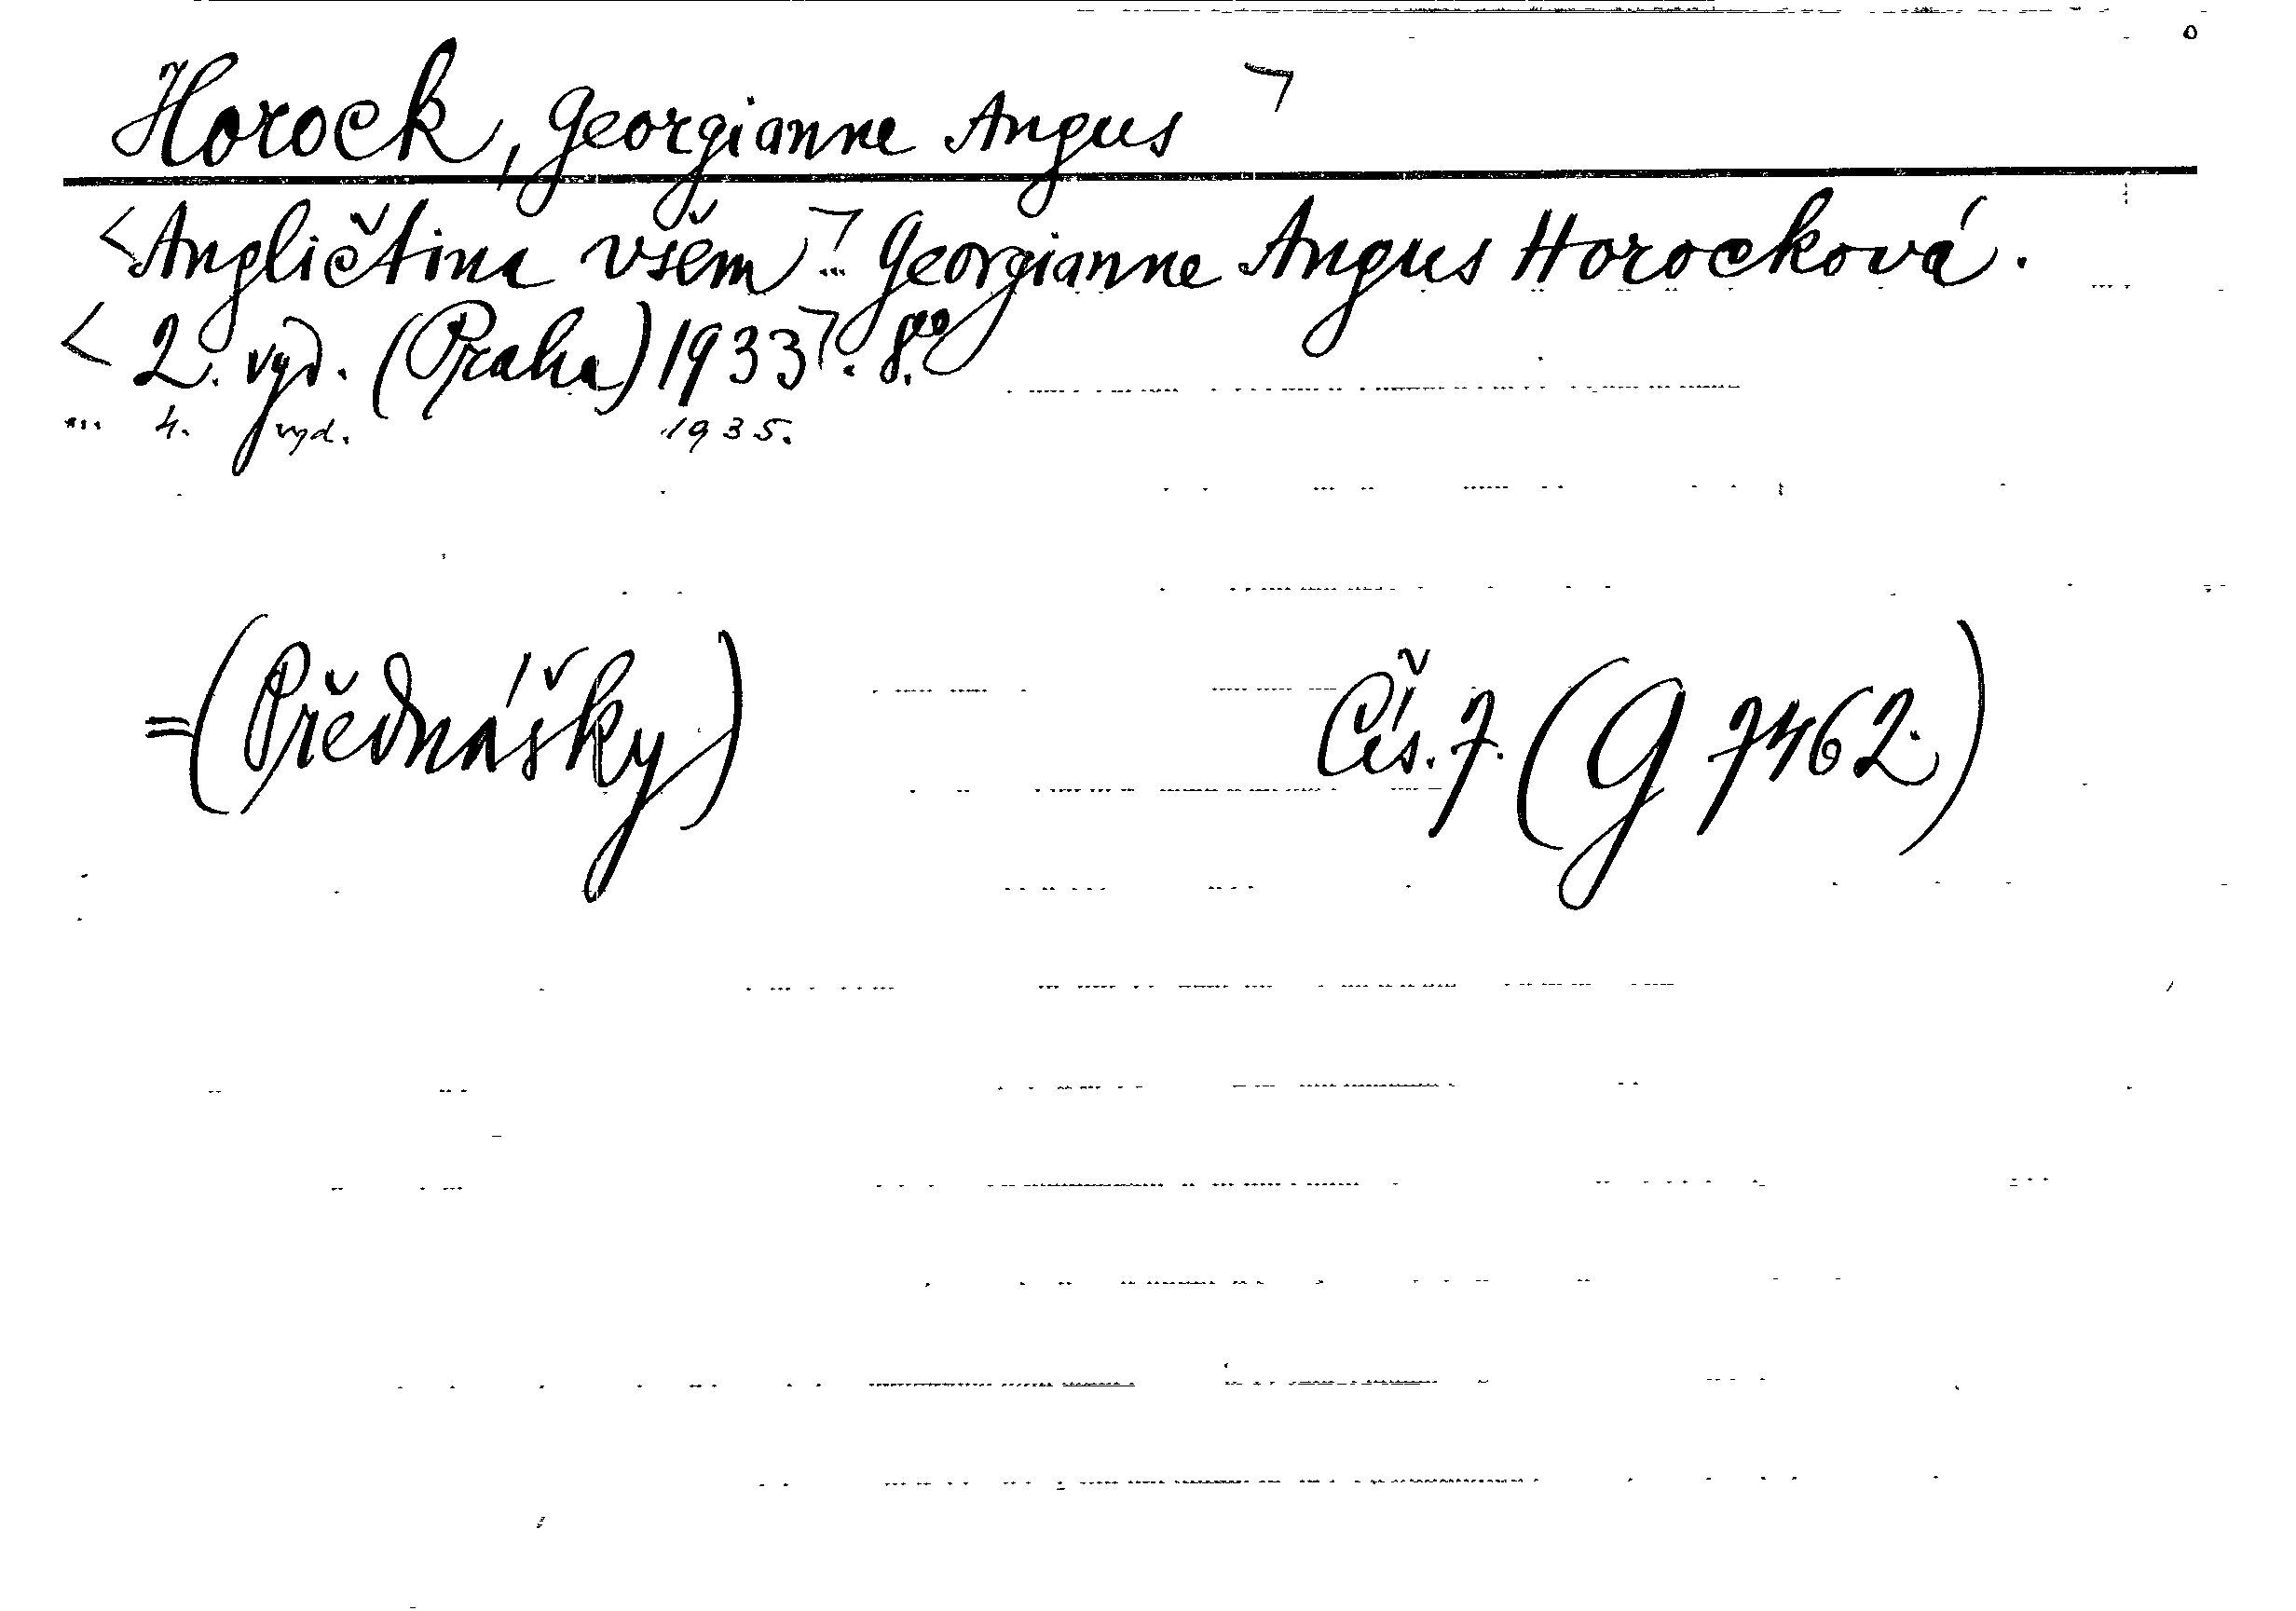 Horock, Georgianne Angus ¬
<Angličtina všem¬... Georgianne Angus Horocková.
< 2. vyd. (Praha) 1933¬. 8.º
... 4. vyd. 1935.
=(Přednášky) Čís. 7. (G 7462.)